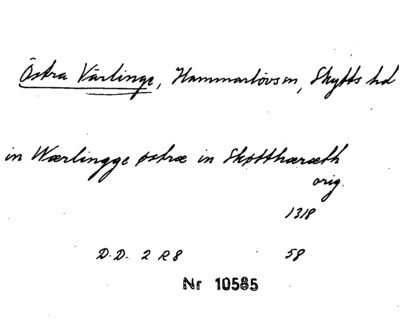 Östra Värlinge, Hammarlövs sn, Skytts hd
in Wærlingge østræ in Skøtthæræth
orig.
1318
D.D. 2 R 8 58
Nr 10585